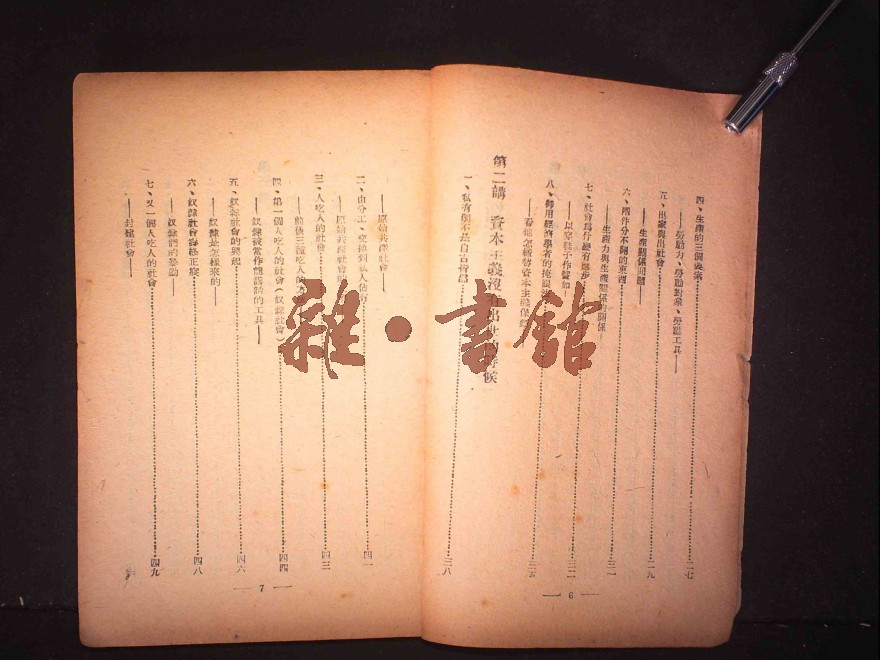 四、生產的三個要素……二七
——勞動力、勞動對象、勞動工具——
五、出家與出社會……二九
——生產關係問題——
六、四件分不開的東西……三一
——生產力與生產關係的關係
七、社會爲什麼有進步……三二
——以草鞋子作譬如——
八、御用經濟學者的掩護
——看他怎樣替資本主義保
第二講 資本主義沒有出世的時候
一、私有制不是自古皆然……三八
— 6 —
——原始共產社會——
二、由分工、交換到私人佔有……四一
——原始共產社會
三、人吃人的社會……四三
——前後三種吃人的
四、第一個人吃人的社會（奴隸社會）……四四
——奴隸被當作能說話的工具——
五、奴隸社會的興起……四六
——奴隸是怎樣來的——
六、奴隸社會壽終正寢……四八
——奴隸們的暴動——
七、又一個人吃人的社會……四九
——封建社會——
— 7 —
雜·書館